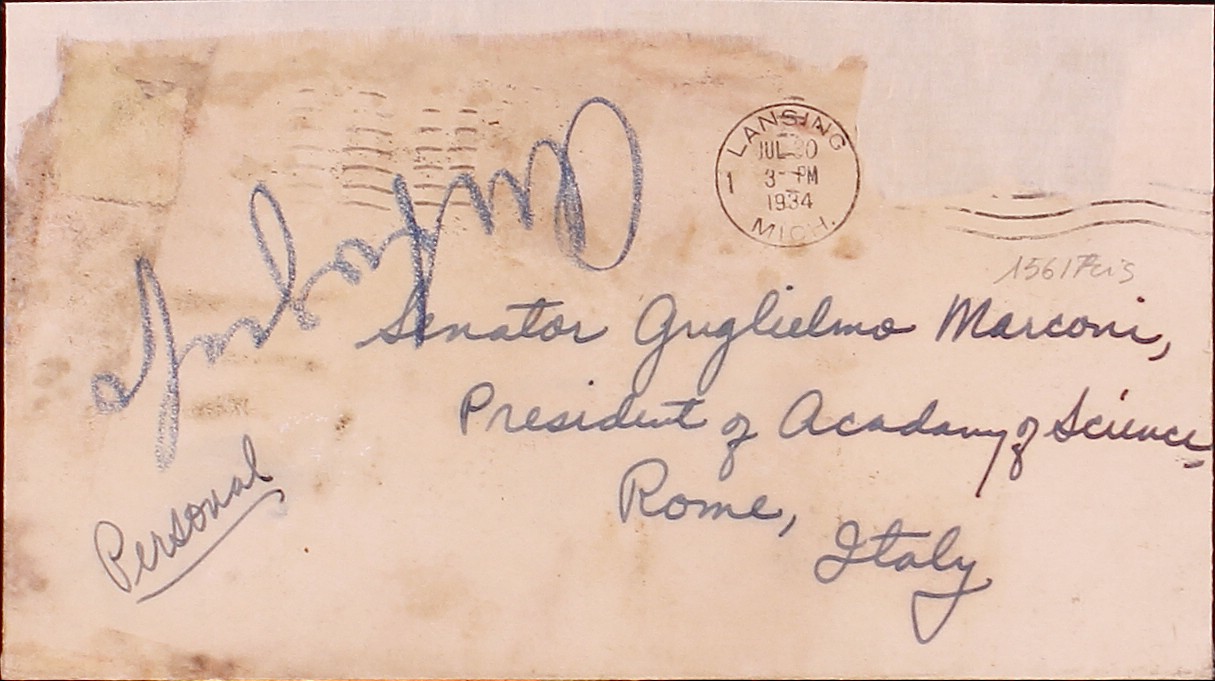 LANSING
JUL 20
1 3-PM
1934
MICH.
Senator Guglielmo Marconi,
President of Acadamy of Science,
Rome,
Italy
Personal